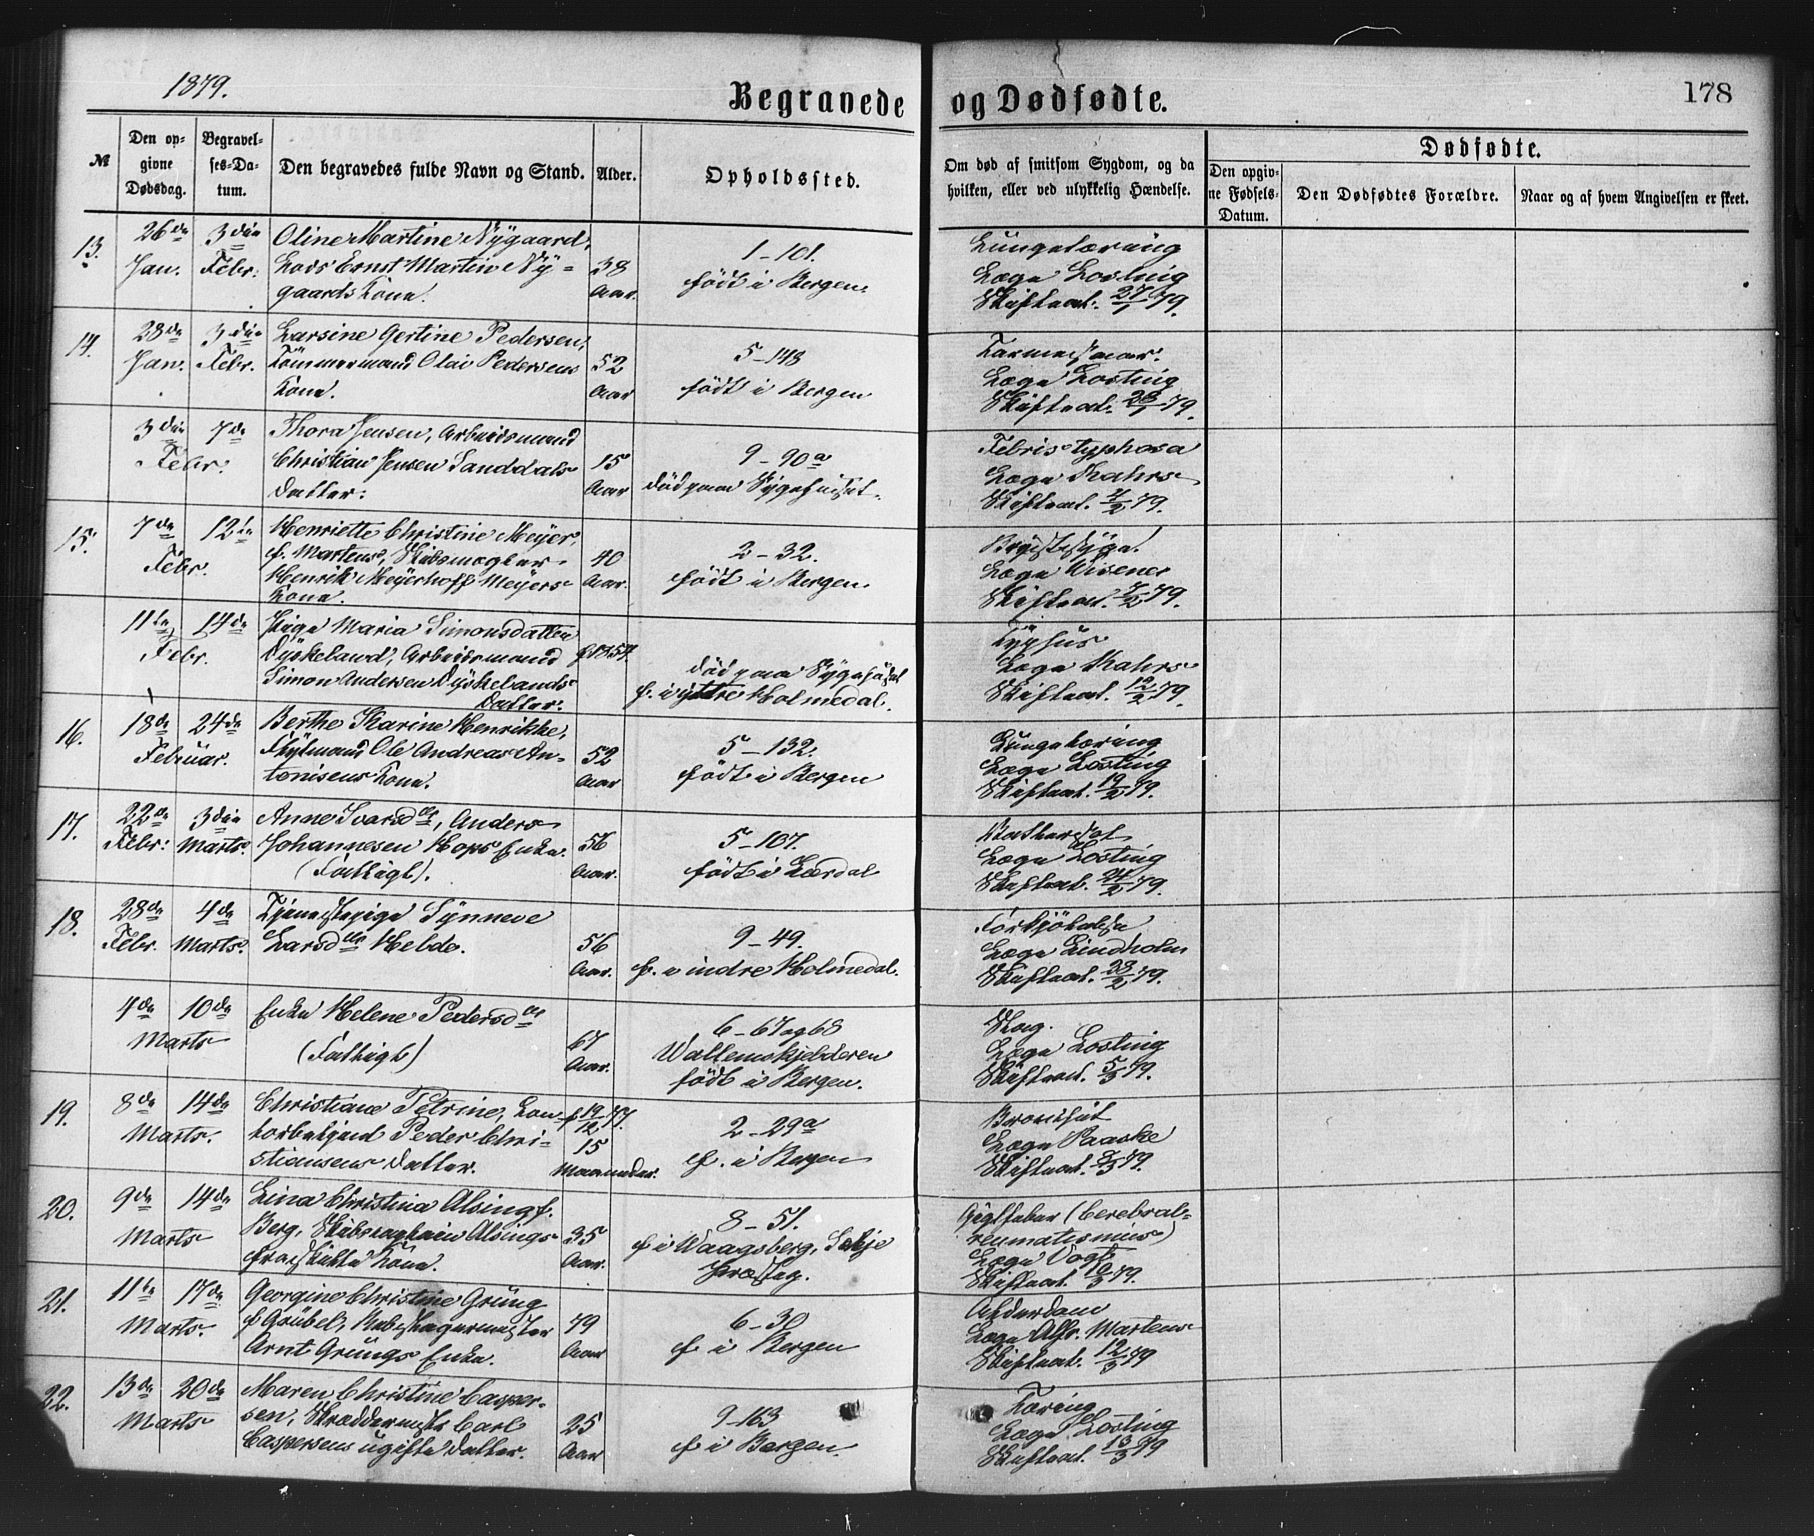 1879.
Begravede og Dødfødte.
178
№
Den opgivne Dødsdag.
Begravelses-Datum.
Den begravedes fulde Navn og Stand.
Alder.
Opholdssted.
Om død af smitsom Sygdom, og da hvilken, eller ved ulykkelig Hændelse.
Dødfødte.
Den opgivne Fødsels-Datum.
Den Dødfødtes Forældre.
Naar og af hvem Angivelsen er skeet.
13. 26de Jan. 3die Febr.
Oline Martine Nygaard,
Lods Ernst Martin Ny-
gaards Kone.
38 Aar.
1-101.
født i Bergen.
Lungetæring
Læge Losting
Skifteat. 27/1 79.
14. 28de Jan. 3die Febr.
Larsine Gertine Pedersen,
Tömmermand Olai Pedersens
Kone.
52 Aar
5-148
født i Bergen
Læge Losting
Skifteat. 28/1 79.
3die 7de Febr.
Thora Jensen, Arbeidsmand
Christian Jensen Sanddals
Datter.
15 Aar
9-90a
död paa Sygehuset.
Febris typhosa
Læge Kahrs
Skifteat. 4/2 79.
15. 7de 12te Febr.
Henriette Christine Meyer,
f. Martens, Skibsmægler
Henrik Meyerhoff Meyers
Kone.
40 Aar.
2-32.
født i Bergen.
Brystsyge.
Læge Wisener
Skifteat. 7/2 79.
11te 14de Febr.
Pige Maria Simonsdatter
Dyskeland, Arbeidsmand
Simon Andersen Dyskelands
Datter.
f. 1854.
död paa Sygehuset
f. i ytre Holmedal.
Typhus
Læge Kahrs
Skifteat. 12/2 79.
16. 18de 24de Februar.
Berthe Karine Henrikke,
Flytmand Ole Andreas An-
tonisens Kone.
52 Aar
5-132.
født i Bergen
Lungetæring
Læge Losting
Skifteat. 19/2 79.
17. 22de Febr. 3die Marts.
Anne Ivarsdtr, Anders
Johannesen Hops Enke.
(Fattigt).
56 Aar.
5-107.
født i Lærdal
Læge Losting
Skifteat. 24/2 79.
18. 28de Febr. 4de Marts.
Tjenestepige Synneve
Larsdtr Helde.
56 Aar.
9-49.
f. i indre Holmedal.
Læge Lindholm
Skifteat. 29/2 79.
4de 10de Marts
Enke Helene Pedersdtr
(Fattigt)
67 Aar.
6-67 og 68
Wallemskjelderen
født i Bergen.
Slag.
Læge Losting
Skifteat. 5/3 79.
19. 8de 14de Marts.
Christiane Petrine, Con-
torbetjent Peder Chri-
stiansens Datter.
f. 19/12 77.
15 Maaneder.
2-29a
f. i Bergen
Bronchit
Læge Paaske
Skifteat. 8/3 79.
20. 9de 14de Marts
Lina Christina Alsing f.
Berg, Skibscaptein Alsings
fraskilte Kone.
35 Aar.
8-51.
f i Waagsberg, Selje
Præsteg.
Gigtfeber (Cerebral-
reumatismus)
Læge Vogt
Skifteat. 10/3 79.
21. 11te 17de Marts.
Georgine Christine Grüng
f. Grübel, Rebslagermester
Arnt Grüngs Enke.
79 Aar
6-30
f i Bergen
Alderdom
Læge Alfr. Martens
Skifteat. 12/3 79
22. 13de 20de Marts
Maren Christine Casper-
sen, Skræddermestr Carl
Caspersens ugifte Datter.
25 Aar
9-163
f i Bergen.
Tæring
Læge Losting
Skifteat. 13/3 79